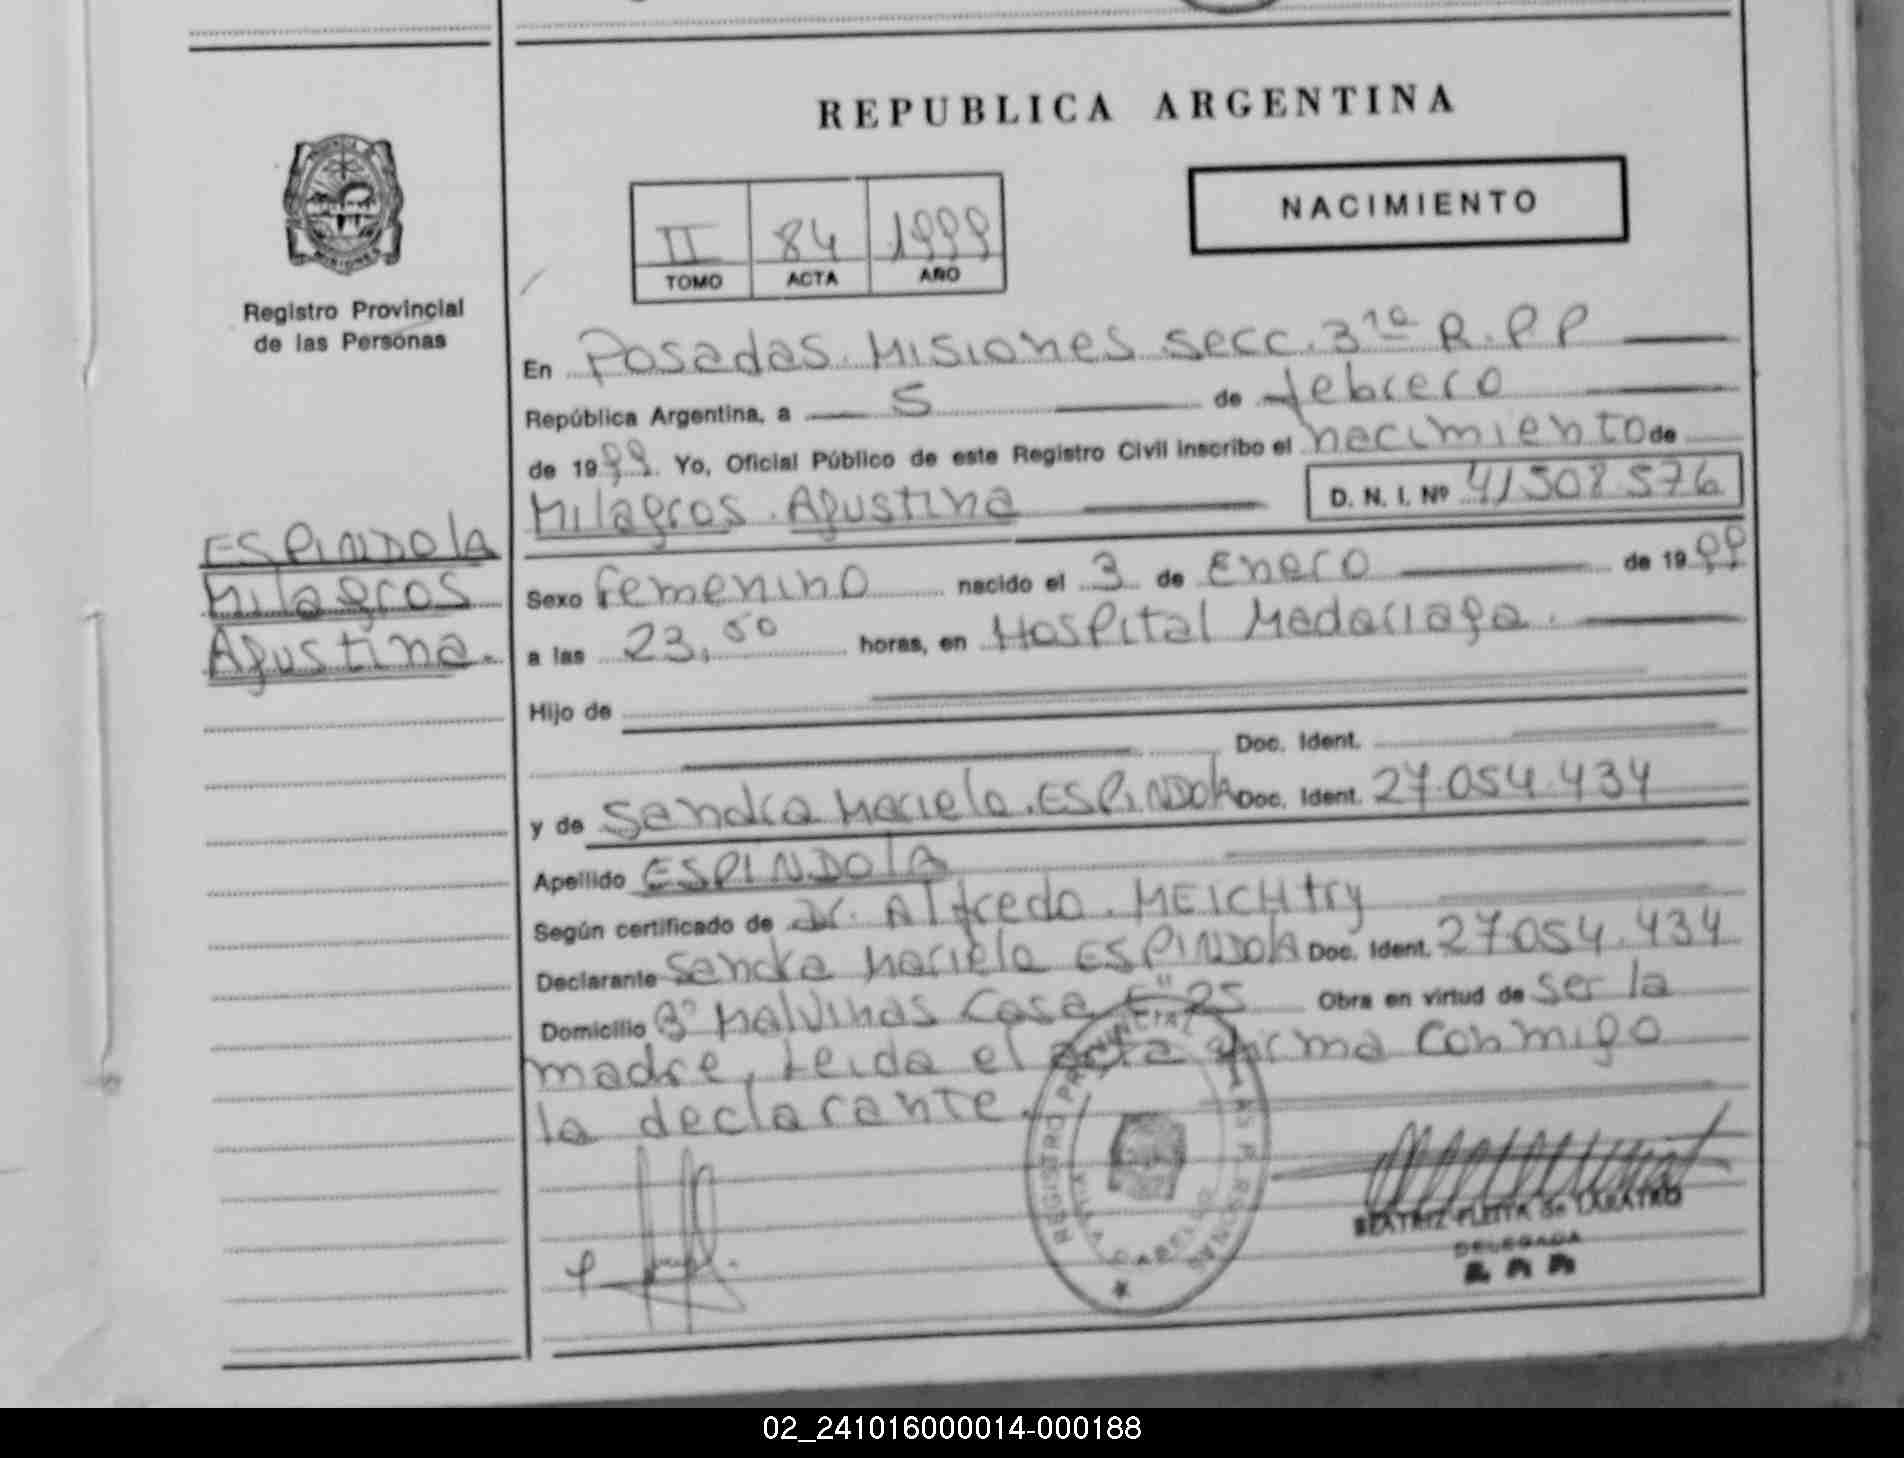 REPUBLICA ARGENTINA
NACIMIENTO
II 84 1999
TOMO ACTA AÑO
Registro Provincial
de las Personas
En Posadas. Misiones secc. 3ra R.P.P
República Argentina, a 5 de febrero
de 1999. Yo, Oficial Público de este Registro Civil inscribo el nacimiento de
Milagros. Agustina D. N. I. Nº 41508576
ESPINDOLA
Milagros
Agustina.
Sexo femenino nacido el 3 de Enero de 1999
a las 23,50 horas, en Hospital Madariaga.
Hijo de
Doc. Ident.
y de Sandra Mariela. ESPINDOLA Doc. Ident. 27.054.434
Apellido ESPINDOLA
Según certificado de Dr. Alfredo. MEICHtry
Declarante Sandra Mariela ESPINDOLA Doc. Ident. 27.054.434
Domicilio Bº Malvinas Casa 25 Obra en virtud de ser la
madre, Leida el acta firma conmigo
la declarante.
REGISTRO PROVINCIAL DE LAS PERSONAS
VILLA CABELLO
BEATRIZ FLEITA de LABATRO
DELEGADA
02_241016000014-000188